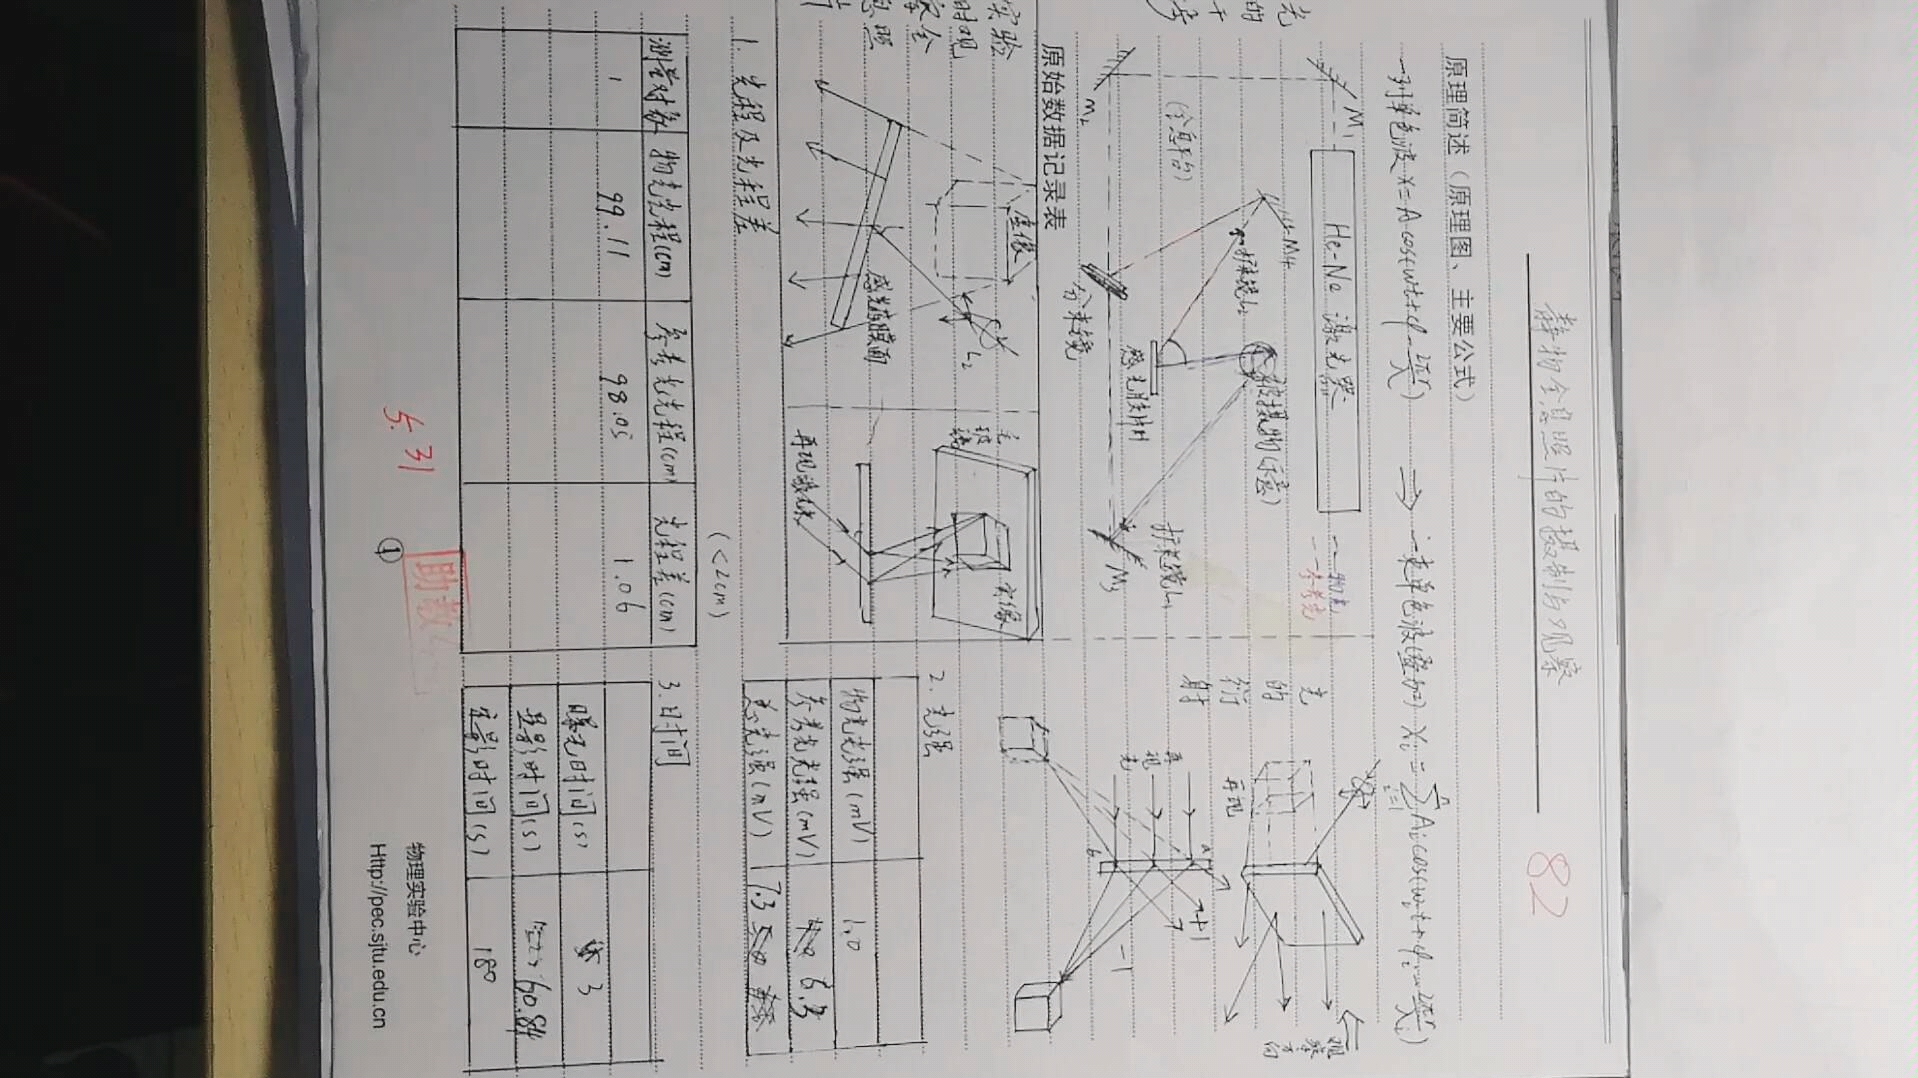 静物全息照片的摄制与观察
82
原理简述（原理图、主要公式）
一列单色波 x=Acos(ωt+φ-2πr/λ) ⇒ 一束单色波(叠加) Xᵢ=
He-Ne 激光器
M₁
物光
参考光
M₄
扩束镜L₂
被摄物(示意)
扩束镜L₁
(全息平台)
感光胶片H
M₂
分束镜
M₃
光的衍射
再现
观察方向
再现光
a
b
+1
-1
原始数据记录表
虚像
L₂
感光胶膜面
毛玻璃
实像
再现激光束
1. 光程及光程差
(<2cm)
测量对象 物光光程(cm) 参考光光程(cm) 光程差(cm)
1 99.11 98.05 1.06
2. 光强
物光光强(mV) 1.0
参考光光强(mV) 6.3
总光强(mV) 7.3
3. 时间
曝光时间(s) 3
显影时间(s) 60.84
定影时间(s) 180
5.31
助教
①
物理实验中心
Http://pec.sjtu.edu.cn